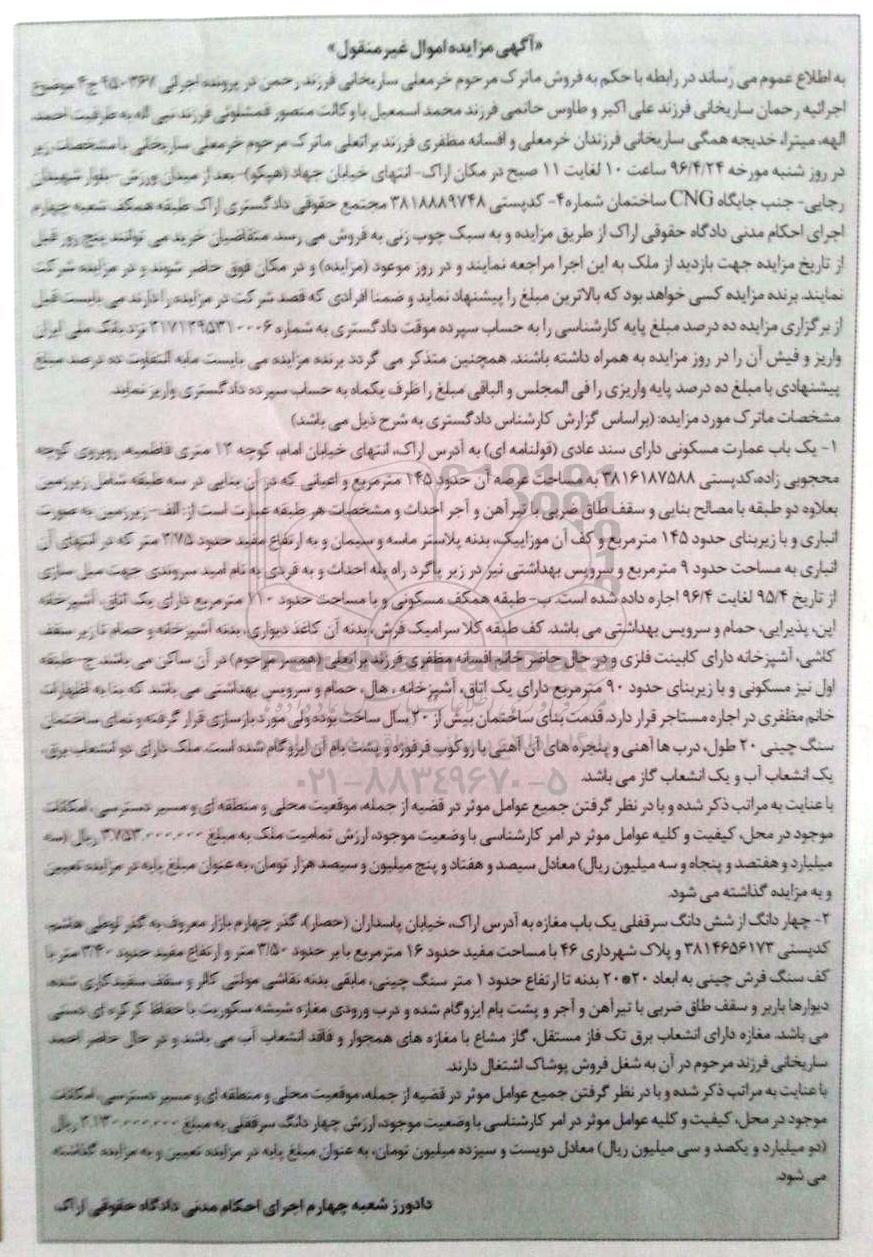 «آگهی مزایده اموال غیر منقول»
به اطلاع عموم می رساند در رابطه با حکم به فروش ماترک مرحوم خرمعلی ساریخانی فرزند رحمن در پرونده اجرائی ۹۵۰۳۶۷ ج ۴ موضوع
اجرائیه رحمان ساریخانی فرزند علی اکبر و طاوس حاتمی فرزند محمد اسمعیل با وکالت منصور قمشلوئی فرزند نبی اله به طرفیت احمد،
الهه، میترا، خدیجه همگی ساریخانی فرزندان خرمعلی و افسانه مظفری فرزند براتعلی ماترک مرحوم خرمعلی ساریخانی با مشخصات زیر
در روز شنبه مورخه ۹۶/۴/۲۴ ساعت ۱۰ لغایت ۱۱ صبح در مکان اراک- انتهای خیابان جهاد (هپکو)- بعد از میدان ورزش- بلوار شهیدان
رجایی- جنب جایگاه CNG ساختمان شماره ۴- کدپستی ۳۸۱۸۸۸۹۷۴۸ مجتمع حقوقی دادگستری اراک طبقه همکف شعبه چهارم
اجرای احکام مدنی دادگاه حقوقی اراک از طریق مزایده و به سبک چوب زنی به فروش می رسد. متقاضیان خرید می توانند پنج روز قبل
از تاریخ مزایده جهت بازدید از ملک به این اجرا مراجعه نمایند و در روز موعود (مزایده) و در مکان فوق حاضر شوند و در مزایده شرکت
نمایند. برنده مزایده کسی خواهد بود که بالاترین مبلغ را پیشنهاد نماید و ضمنا افرادی که قصد شرکت در مزایده را دارند می بایست قبل
از برگزاری مزایده ده درصد مبلغ پایه کارشناسی را به حساب سپرده موقت دادگستری به شماره ۲۱۷۱۲۹۵۳۱۰۰۰۶ نزد بانک ملی ایران
واریز و فیش آن را در روز مزایده به همراه داشته باشند. همچنین متذکر می گردد برنده مزایده می بایست مابه التفاوت ده درصد مبلغ
پیشنهادی با مبلغ ده درصد پایه واریزی را فی المجلس و الباقی مبلغ را ظرف یکماه به حساب سپرده دادگستری واریز نماید.
مشخصات ماترک مورد مزایده: (براساس گزارش کارشناس دادگستری به شرح ذیل می باشد)
۱- یک باب عمارت مسکونی دارای سند عادی (قولنامه ای) به آدرس اراک، انتهای خیابان امام، کوچه ۱۲ متری فاطمیه، روبروی کوچه
محجوبی زاده، کدپستی ۳۸۱۶۱۸۷۵۸۸ به مساحت عرصه آن حدود ۱۴۵ مترمربع و اعیانی که در آن بنایی در سه طبقه شامل زیرزمین
بعلاوه دو طبقه با مصالح بنایی و سقف طاق ضربی با تیر آهن و آجر احداث و مشخصات هر طبقه عبارت است از: الف- زیرزمین به صورت
انباری و با زیربنای حدود ۱۴۵ مترمربع و کف آن موزاییک، بدنه پلاستر ماسه و سیمان و به ارتفاع مفید حدود ۲/۷۵ متر که در انتهای آن
انباری به مساحت حدود ۹ مترمربع و سرویس بهداشتی نیز در زیر پاگرد راه پله احداث و به فردی به نام امید سروندی جهت مبل سازی
از تاریخ ۹۵/۴ لغایت ۹۶/۴ اجاره داده شده است. ب- طبقه همکف مسکونی و با مساحت حدود ۱۱۰ مترمربع دارای یک اتاق، آشپزخانه
اپن، پذیرایی، حمام و سرویس بهداشتی می باشد. کف طبقه کلا سرامیک فرش، بدنه آن کاغذ دیواری، بدنه آشپزخانه و حمام تا زیر سقف
کاشی، آشپزخانه دارای کابینت فلزی و در حال حاضر خانم افسانه مظفری فرزند براتعلی (همسر مرحوم) در آن ساکن می باشند ج- طبقه
اول نیز مسکونی و با زیربنای حدود ۹۰ مترمربع دارای یک اتاق، آشپزخانه، هال، حمام و سرویس بهداشتی می باشد که بنا به اظهارات
خانم مظفری در اجاره مستاجر قرار دارد. قدمت بنای ساختمان بیش از ۲۰ سال ساخت بوده ولی مورد بازسازی قرار گرفته و نمای ساختمان
سنگ چینی ۲۰ طول، درب ها آهنی و پنجره های آن آهنی با روکوب فرفوژه و پشت بام آن ایزوگام شده است. ملک دارای دو انشعاب برق،
یک انشعاب آب و یک انشعاب گاز می باشد.
با عنایت به مراتب ذکر شده و با در نظر گرفتن جمیع عوامل موثر در قضیه از جمله، موقعیت محلی و منطقه ای و مسیر دسترسی، امکانات
موجود در محل، کیفیت و کلیه عوامل موثر در امر کارشناسی با وضعیت موجود، ارزش تمامیت ملک به مبلغ ۳.۷۵۳.۰۰۰.۰۰۰ ریال (سه
میلیارد و هفتصد و پنجاه و سه میلیون ریال) معادل سیصد و هفتاد و پنج میلیون و سیصد هزار تومان، به عنوان مبلغ پایه در مزایده تعیین
و به مزایده گذاشته می شود.
۲- چهار دانگ از شش دانگ سرقفلی یک باب مغازه به آدرس اراک، خیابان پاسداران (حصار)، گذر چهارم بازار معروف به گذر لوطی هاشم،
کدپستی ۳۸۱۴۶۵۶۱۷۳ و پلاک شهرداری ۴۶ با مساحت مفید حدود ۱۶ مترمربع با بر حدود ۳/۵۰ متر و ارتفاع مفید حدود ۳/۴۰ متر با
کف سنگ فرش چینی به ابعاد ۲۰*۲۰ بدنه تا ارتفاع حدود ۱ متر سنگ چینی، مابقی بدنه نقاشی مولتی کالر و سقف سفیدکاری شده،
دیوارها باربر و سقف طاق ضربی با تیر آهن و آجر و پشت بام ایزوگام شده و درب ورودی مغازه شیشه سکوریت با حفاظ کرکره ای دستی
می باشد. مغازه دارای انشعاب برق تک فاز مستقل، گاز مشاع با مغازه های همجوار و فاقد انشعاب آب می باشد و در حال حاضر احمد
ساریخانی فرزند مرحوم در آن به شغل فروش پوشاک اشتغال دارند.
با عنایت به مراتب ذکر شده و با در نظر گرفتن جمیع عوامل موثر در قضیه از جمله، موقعیت محلی و منطقه ای و مسیر دسترسی، امکانات
موجود در محل، کیفیت و کلیه عوامل موثر در امر کارشناسی با وضعیت موجود، ارزش چهار دانگ سرقفلی به مبلغ ۲.۱۳۰.۰۰۰.۰۰۰ ریال
(دو میلیارد و یکصد و سی میلیون ریال) معادل دویست و سیزده میلیون تومان، به عنوان مبلغ پایه در مزایده تعیین و به مزایده گذاشته
می شود.
دادورز شعبه چهارم اجرای احکام مدنی دادگاه حقوقی اراک
ParsNamadData
۰۲۱-۸۸۳۴۹۶۷۰-۵